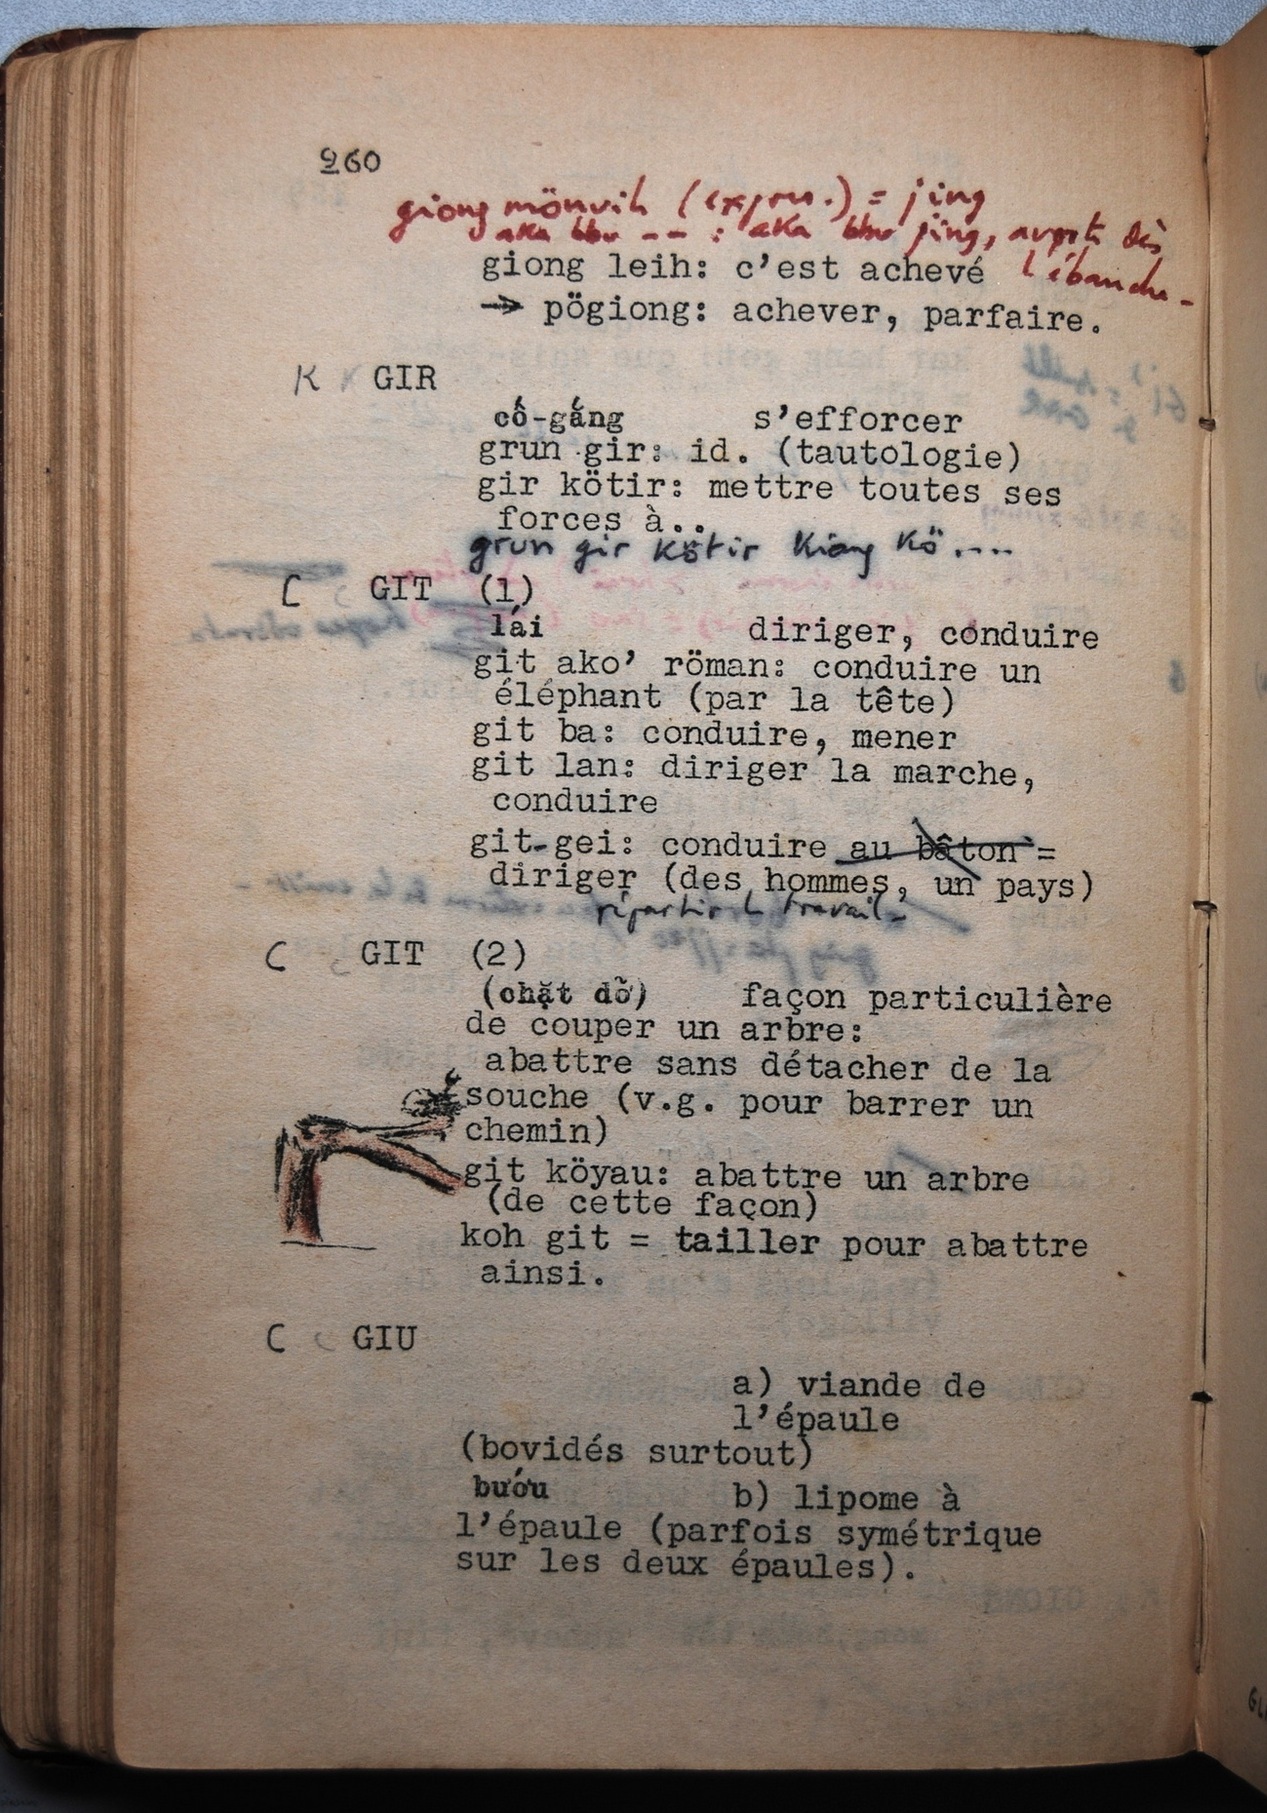 260
giong mönuih (expres.) = jing
aka bbu -- : aka bbu jing, avorté dès
l'ébauche.
giong leih: c'est achevé
→ pögiong: achever, parfaire.
K GIR
cố-gắng s'efforcer
grun gir: id. (tautologie)
gir kötir: mettre toutes ses
forces à..
grun gir kötir kiang kö....
C GIT (1)
lái diriger, conduire
git ako' röman: conduire un
éléphant (par la tête)
git ba: conduire, mener
git lan: diriger la marche,
conduire
git-gei: conduire au bâton =
diriger (des hommes, un pays)
répartir l travail.
C GIT (2)
(chặt dỡ) façon particulière
de couper un arbre:
abattre sans détacher de la
souche (v.g. pour barrer un
chemin)
git köyau: abattre un arbre
(de cette façon)
koh git = tailler pour abattre
ainsi.
C GIU
a) viande de
l'épaule
(bovidés surtout)
bướu b) lipome à
l'épaule (parfois symétrique
sur les deux épaules).